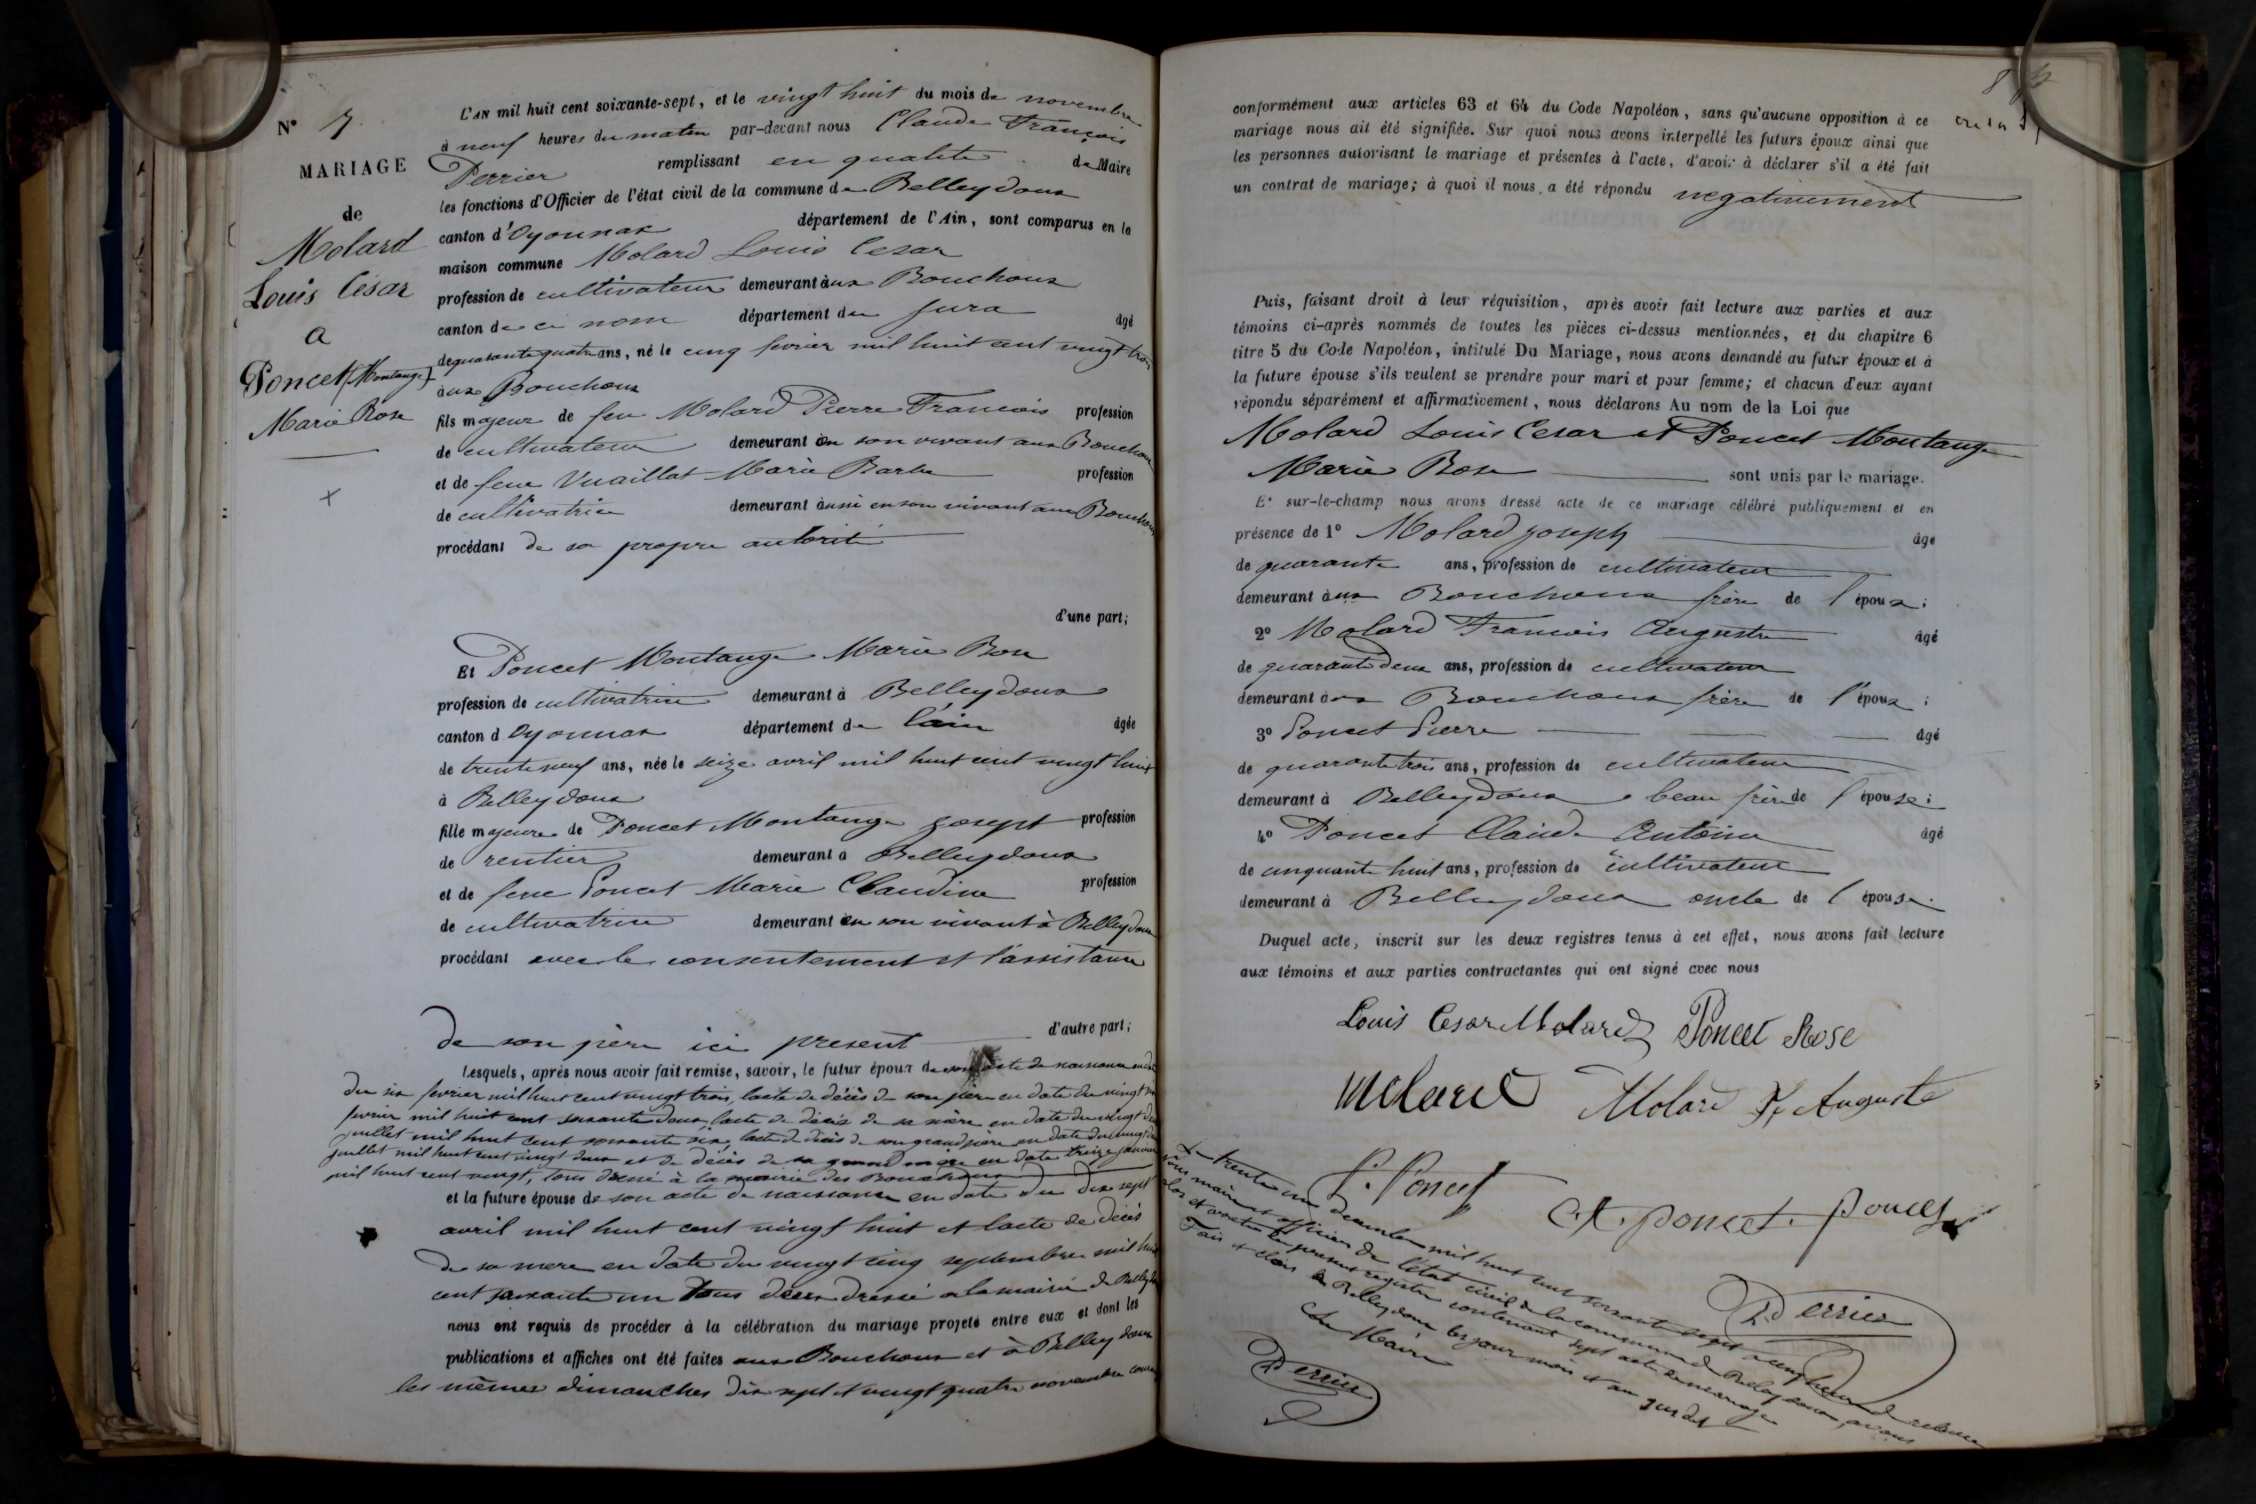 N° 7
MARIAGE
de
Molard
Louis César
a
Poncet (Montange)
Marie Rose
L'AN mil huit cent soixante-sept, et le vingt huit du mois de novembre
à neuf heures du matin par-devant nous Claude François
Perrier remplissant en qualité de Maire
les fonctions d'Officier de l'état civil de la commune de Belleydoux
canton d'Oyonnax département de l'Ain, sont comparus en la
maison commune Molard Louis Cesar
profession de cultivateur demeurant aux Bouchoux
canton de ce nom département du Jura âgé
de quarante quatre ans, né le cinq fevrier mil huit cent vingt trois
aux Bouchoux
fils majeur de feu Molard Pierre Francois profession
de cultivateur demeurant en son vivant aux Bouchoux
et de feue Vuaillat Marie Barbe profession
de cultivatrice demeurant aussi en son vivant aux Bouchoux
procédant de sa propre autorité
d'une part;
Et Poncet Montange Marie Rose
profession de cultivatrice demeurant à Belleydoux
canton d Oyonnax département de l'ain âgée
de trente neuf ans, née le seize avril mil huit cent vingt huit
à Belleydoux
fille majeure de Poncet Montange Josept profession
de rentier demeurant a Belleydoux
et de feue Poncet Marie Claudine profession
de cultivatrice demeurant en son vivant à Belleydoux
procédant avec le consentement et l'assistance
de son père ici present d'autre part;
Lesquels, après nous avoir fait remise, savoir, le futur époux de son acte de naissance en date
du six fevrier mil huit cent vingt trois, lacte de décès de son père en date du vingt
fevrier mil huit cent soixante deux lacte de décès de sa mère en date du vingt
juillet mil huit cent soixante six, lacte de décès de son grand père en date du vingt
juillet mil huit cent vingt deux et de décès de sa grand mère en date treize janvier
mil huit cent vingt, tous dressé à la mairie des Bouchoux
et la future épouse de son acte de naissance en date du dix sept
avril mil huit cent vingt huit et lacte de décès
de sa mere en date du vingt cinq septembre mil huit
cent soixante un tous deux dressé a la mairie de Belleydoux
nous ont requis de procéder à la célébration du mariage projeté entre eux et dont les
publications et affiches ont été faites aux Bouchoux et à Belleydoux
les mêmes dimanches dix sept et vingt quatre novembre courant
conformément aux articles 63 et 64 du Code Napoléon, sans qu'aucune opposition à ce
mariage nous ait été signifiée. Sur quoi nous avons interpellé les futurs époux ainsi que
les personnes autorisant le mariage et présentes à l'acte, d'avoir à déclarer s'il a été fait
un contrat de mariage; à quoi il nous a été répondu negativement
Puis, faisant droit à leur réquisition, après avoir fait lecture aux parties et aux
témoins ci-après nommés de toutes les pièces ci-dessus mentionnées, et du chapitre 6
titre 5 du Code Napoléon, intitulé Du Mariage, nous avons demandé au futur époux et à
la future épouse s'ils veulent se prendre pour mari et pour femme; et chacun d'eux ayant
répondu séparément et affirmativement, nous déclarons Au nom de la Loi que
Molard Louis Cesar et Poncet Montange
Marie Rose sont unis par le mariage.
Et sur-le-champ nous avons dressé acte de ce mariage célébré publiquement et en
présence de 1° Molard Joseph âge
de quarante ans, profession de cultivateur
demeurant aux Bouchoux frère de l'époux;
2° Molard Francois Auguste âgé
de quarante deux ans, profession de cultivateur
demeurant aux Bouchoux frère de l'époux;
3° Poncet Pierre âgé
de quarante trois ans, profession de cultivateur
demeurant à Belleydoux beau frère de l'épouse;
4° Poncet Claude Antoine âgé
de cinquante huit ans, profession de cultivateur
demeurant à Belleydoux oncle de l'épouse.
Duquel acte, inscrit sur les deux registres tenus à cet effet, nous avons fait lecture
aux témoins et aux parties contractantes qui ont signé avec nous
Louis Cesar Molard Poncet Rose
Molard Molard F Auguste
P. Poncet C. A. poncet. poncet
Perrier
trente un decembre mil huit cent soixante sept a cinq heures de relevée
Nous maire et officier de l'état civil de la commune de Belleydoux avons
clos et arrêté le present registre contenant sept actes de mariage
Fait et clos à Belleydoux les jour mois et an que dit
Le Maire
Perrier